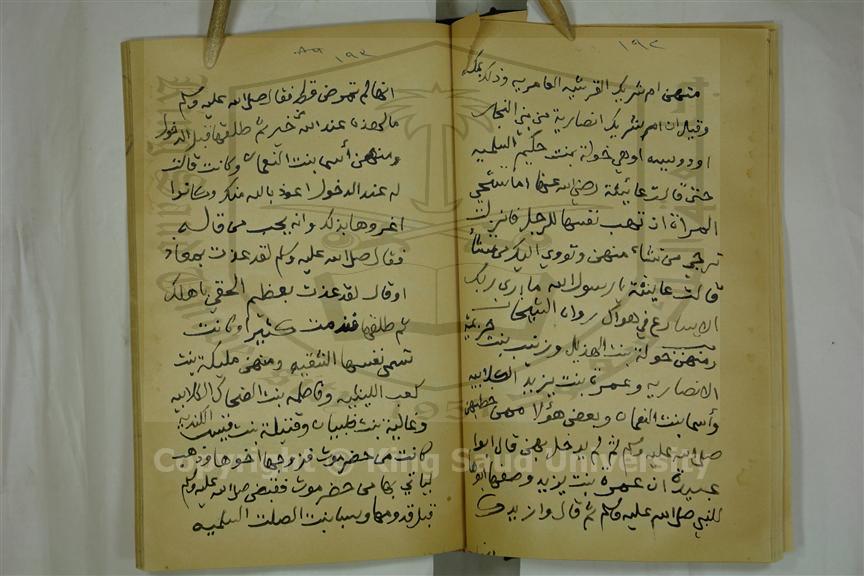 ١٩٢
منهن ام شريك القرشيه العامريه وذلك بمكه
وقيل ان ام شريك انصارية من بني النجار
او دوسيه او هي خولة بنت حكيم السلميه
حتى قالت عائشة رضي الله عنها اما تستحي
المراة ان تهب نفسها للرجل فانزلت
ترجي من تشاء منهن وتووي اليك من تشاء
قالت عايشة يا رسول الله ما اري ربك
الا يسارع في هواك رواه الشيخان
ومنهن خولة بنت الهذيل وزينب بنت خزيمه
الانصاريه وعمرة بنت يزيد الكلابيه
وأسما بنت النعمان وبعض هؤلا ممن خطبهن
صلى الله عليه وسلم ثم لم يدخل بهن قال ابوا
عبيدة ان عمرة بنت يزيد وصفها ابوها
للنبي صلى الله عليه وسلم ثم قال وازيدك
١٩٣
انها لم تمرض قط فقال صلى الله عليه وسلم
ما لهذه عند الله من خير ثم طلقها قبل الدخول
ومنهن أسما بنت النعمان وكانت قالت
له عند الدخول اعوذ بالله منك وكانوا
اغروها بذلك وانه يحب من قاله
فقال صلى الله عليه وسلم لقد عذت بمعاذ
او قال لقد عذت بعظيم الحقي باهلك
ثم طلقها فندمت كثيرا وكانت
تسمي نفسها الشقيه ومنهن مليكة بنت
كعب الليثيه وفاطمه بنت الضحاك الكلابيه
وعالية بنت ظبيان وقتيلة بنت قيس الكنديه
كانت من حضرموت فزوجها أخوها وذهب
لياتي بها من حضرموت فقبض صلى الله عليه وسلم
قبل قدومها وسبا بنت الصلت السلميه
Copyright © King Saud University
1957